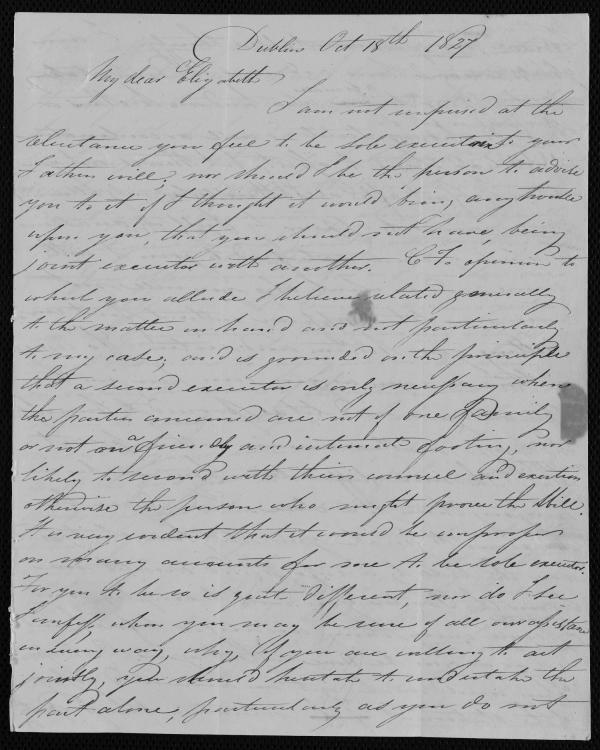 Dublin Oct 18th 1827
My dear Elizabeth
I am not surprised at the
reluctance you feel to be sole executrix to your
Fathers will; nor should I be the person to advise
you to it if I thought it would bring any trouble
upon you, that you should not have, being
joint executor with another. C F's opinion to
which you allude I believe related generally
to the matter in hand and not particularly
to my case; and is grounded on the principle
that a second executor is only necessary when
the parties concerned are not of one family
or not on a friendly and intimate footing, nor
likely to second with their counsel and exertion
otherwise the person who might prove the Will.
It is very evident that it would be improper
on many accounts for me to be sole executor.
For you to be so is quite different, nor do I see
I confess, when you may be sure of all our assistance
in every way, why, if you are willing to act
jointly, you should hesitate to undertake the
part alone, particularly as you do not